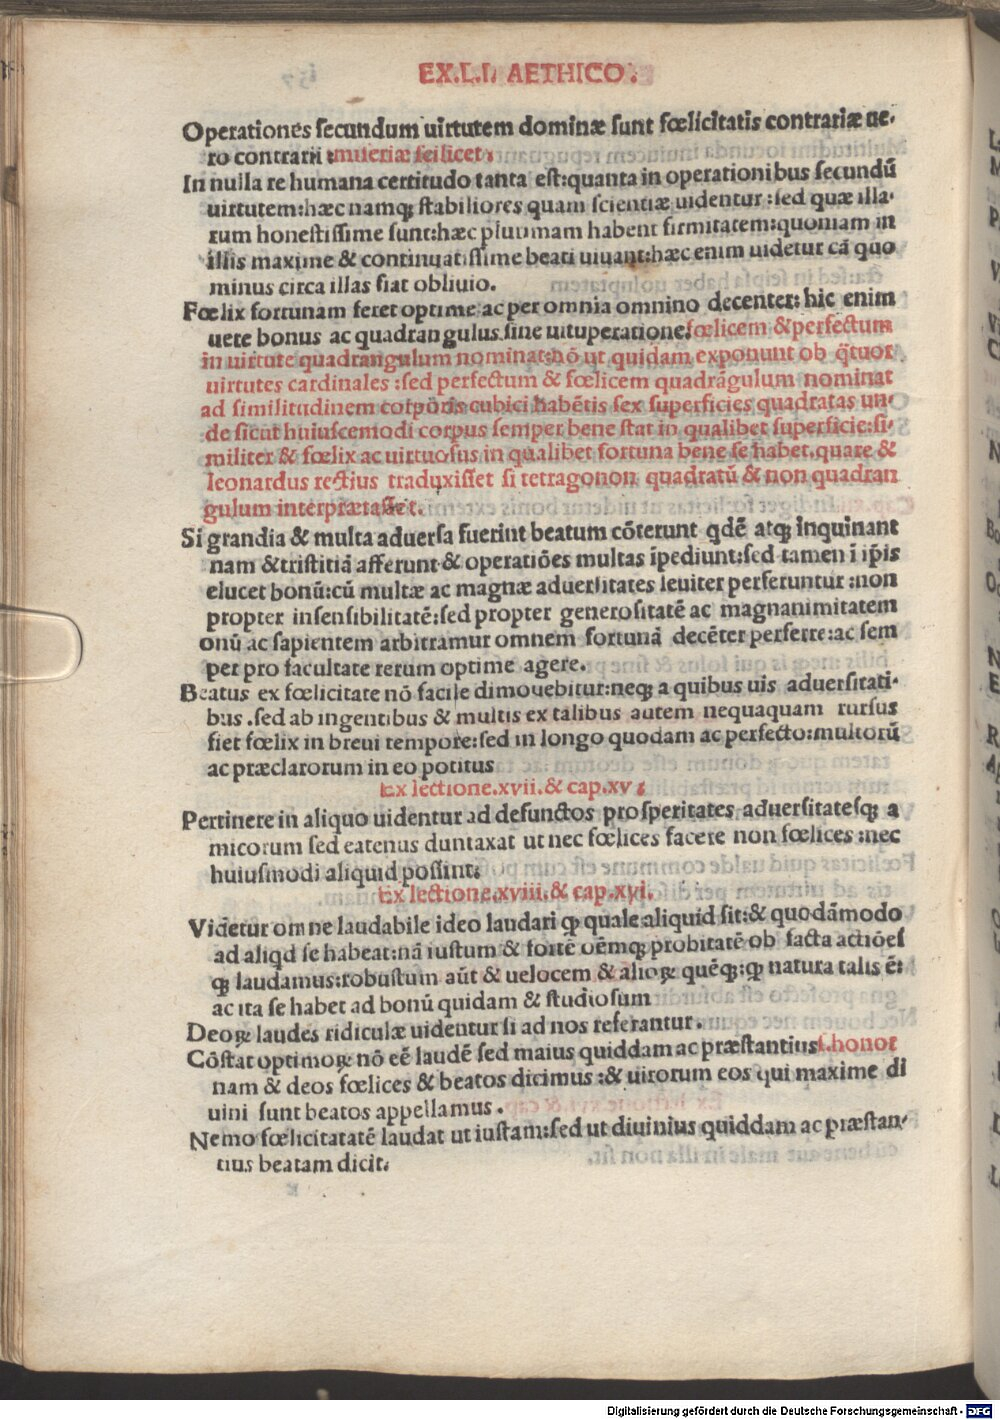 EX.L.I. AETHICO.
Operationes secundum uirtutem dominæ sunt fœlicitatis contrariæ ue-
ro contrarii :miseriæ scilicet.
In nulla re humana certitudo tanta est:quanta in operationibus secundū
uirtutem:hæc namqꝫ stabiliores quam scientiæ uidentur :sed quæ illa-
rum honestissime sunt:hæc plurimam habent firmitatem:quoniam in
illis maxime & continuatissime beati uiuant:hæc enim uidetur cā quo
minus circa illas fiat obliuio.
Fœlix fortunam feret optime ac per omnia omnino decenter: hic enim
uere bonus ac quadrangulus sine uituperatione.fœlicem & perfectum
in uirtute quadrangulum nominat:nō ut quidam exponunt ob q̄tuor
uirtutes cardinales :sed perfectum & fœlicem quadrāgulum nominat
ad similitudinem corporis cubici habētis sex superficies quadratas un-
de sicut huiuscemodi corpus semper bene stat in qualibet superficie:si-
militer & fœlix ac uirtuosus in qualibet fortuna bene se habet.quare &
leonardus rectius traduxisset si tetragonon quadratū & non quadran
gulum interprætasset.
Si grandia & multa aduersa fuerint beatum cōterunt qdē atqꝫ inquinant
nam & tristitiā afferunt & operatiōes multas īpediunt:sed tamen ī ip̄is
elucet bonū:cū multæ ac magnæ aduersitates leuiter perferuntur :non
propter insensibilitatē:sed propter generositatē ac magnanimitatem
onū ac sapientem arbitramur omnem fortunā decēter perferre:ac sem
per pro facultate rerum optime agere.
Beatus ex fœlicitate nō facile dimouebitur:neqꝫ a quibus uis aduersitati-
bus .sed ab ingentibus & multis ex talibus autem nequaquam rursus
fiet fœlix in breui tempore:sed in longo quodam ac perfecto:multorū
ac præclarorum in eo potitus
Ex lectione.xvii.& cap.xv.
Pertinere in aliquo uidentur ad defunctos prosperitates aduersitatesqꝫ a
micorum sed eatenus duntaxat ut nec fœlices facere non fœlices :nec
huiusmodi aliquid possint.
Ex lectione.xviii.& cap.xvi.
Videtur omne laudabile ideo laudari qꝫ quale aliquid sit:& quodāmodo
ad aliqd se habeat:nā iustum & fortē oēmqꝫ probitatē ob facta actiōes
qꝫ laudamus:robustum aūt & uelocem & alioꝝ quēqꝫ:qꝫ natura talis ē:
ac ita se habet ad bonū quidam & studiosum
Deoꝝ laudes ridiculæ uidentur si ad nos referantur.
Cōstat optimoꝝ nō eē laudē sed maius quiddam ac præstantius s.honor
nam & deos fœlices & beatos dicimus :& uirorum eos qui maxime di
uini sunt beatos appellamus.
Nemo fœlicitatatē laudat ut iustam:sed ut diuinius quiddam ac præstan-
tius beatam dicit.
Digitalisierung gefördert durch die Deutsche Forschungsgemeinschaft - DFG